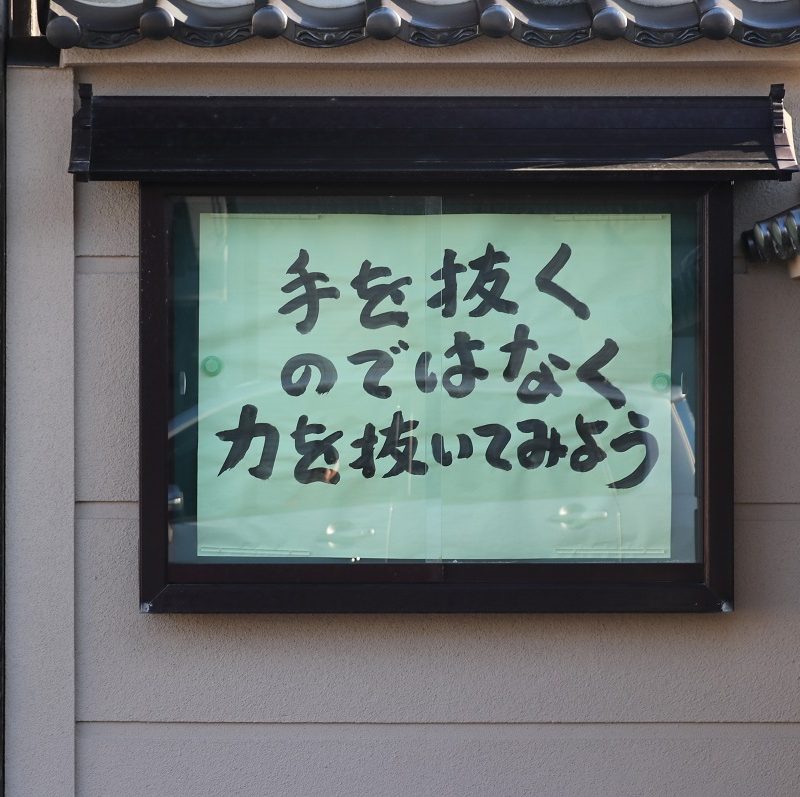 手を抜く
のではなく
力を抜いてみよう